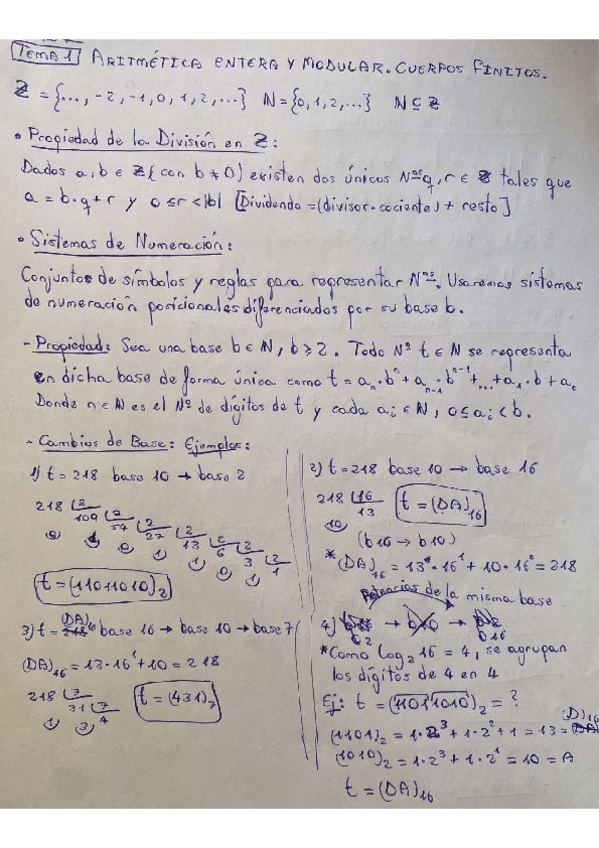 Tema 1 ARITMÉTICA ENTERA Y MODULAR. CUERPOS FINITOS.
ℤ = {..., -2, -1, 0, 1, 2, ...} ℕ = {0, 1, 2, ...} ℕ ⊆ ℤ
• Propiedad de la División en ℤ:
Dados a, b ∈ ℤ (con b ≠ 0) existen dos únicos Nºs q, r ∈ ℤ tales que
a = b·q + r y 0 ≤ r < |b| [Dividendo = (divisor·cociente) + resto]
• Sistemas de Numeración:
Conjuntos de símbolos y reglas para representar Nºs. Usaremos sistemas
de numeración posicionales diferenciados por su base b.
- Propiedad: Sea una base b ∈ ℕ, b ≥ 2. Todo Nº t ∈ ℕ se representa
en dicha base de forma única como t = aₙ·bⁿ + aₙ₋₁·bⁿ⁻¹ + ... + a₁·b + a₀
Donde n ∈ ℕ es el Nº de dígitos de t y cada aᵢ ∈ ℕ, 0 ≤ aᵢ < b.
- Cambios de Base: Ejemplos:
1) t = 218 base 10 → base 2
218 2
109 2
54 2
27 2
13 2
6 2
3 2
1
0 1 0 1 1 0 1
t = (11011010)₂
2) t = 218 base 10 → base 16
218 16
10 13
t = (DA)₁₆
(b16 → b10)
* (DA)₁₆ = 13·16¹ + 10·16⁰ = 218
3) t = (DA)₁₆ base 16 → base 10 → base 7
(DA)₁₆ = 13·16¹ + 10 = 218
218 7
1 31 7
3 4
t = (431)₇
Potencias de la misma base
4) b2 → b10 → b16
* Como log₂ 16 = 4, se agrupan
los dígitos de 4 en 4
Ej: t = (11011010)₂ = ?
(1101)₂ = 1·2³ + 1·2² + 1 = 13 = (D)₁₆
(1010)₂ = 1·2³ + 1·2¹ = 10 = A
t = (DA)₁₆